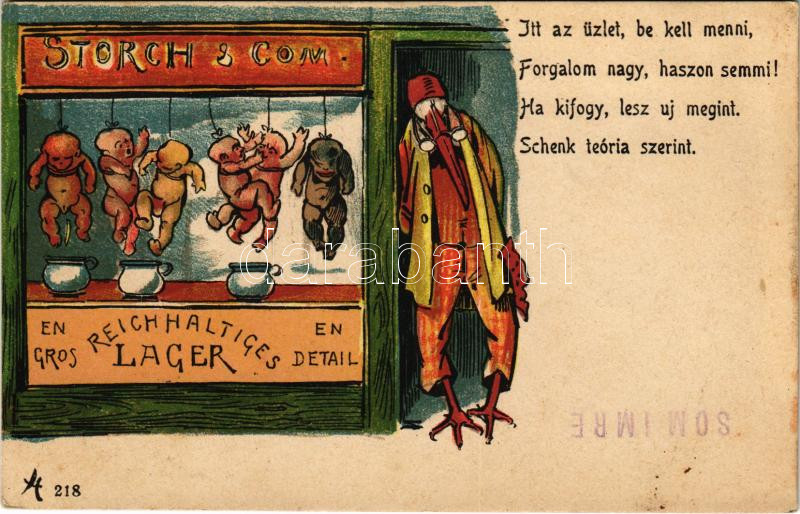 STORCH & COM.
EN GROS
REICHHALTIGES
LAGER
EN DETAIL
Itt az üzlet, be kell menni,
Forgalom nagy, haszon semmi!
Ha kifogy, lesz uj megint.
Schenk teória szerint.
darabanth
SOM IMRE
218